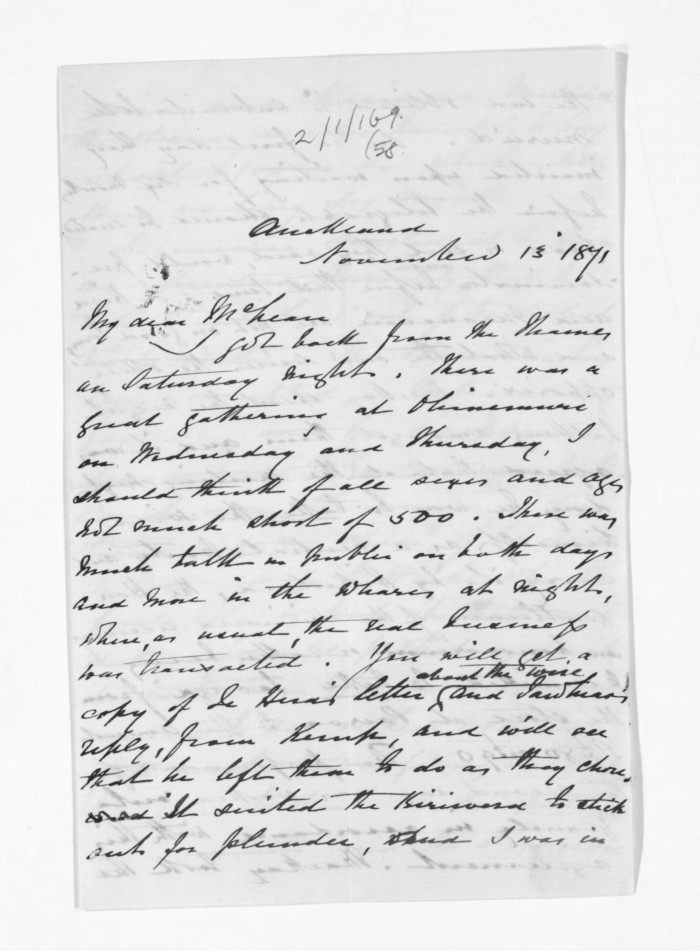 2/1/169.
(58
Auckland
November 13th 1871
My dear McLean
I got back from the Thames
on Saturday night. There was a
great gathering at Ohinemuri
on Wednesday and Thursday, I
should think of all sexes and ages
not much short of 500. There was
much talk in public on both days
and more in the whares at night,
where, as usual, the real business
was transacted. You will get a
copy of Te Hira's letter about the wire and Tawhiao's
reply, from Kemp, and will see
that he left them to do as they chose,
It suited the Kiriwera to stick
out for plunder, and I was in